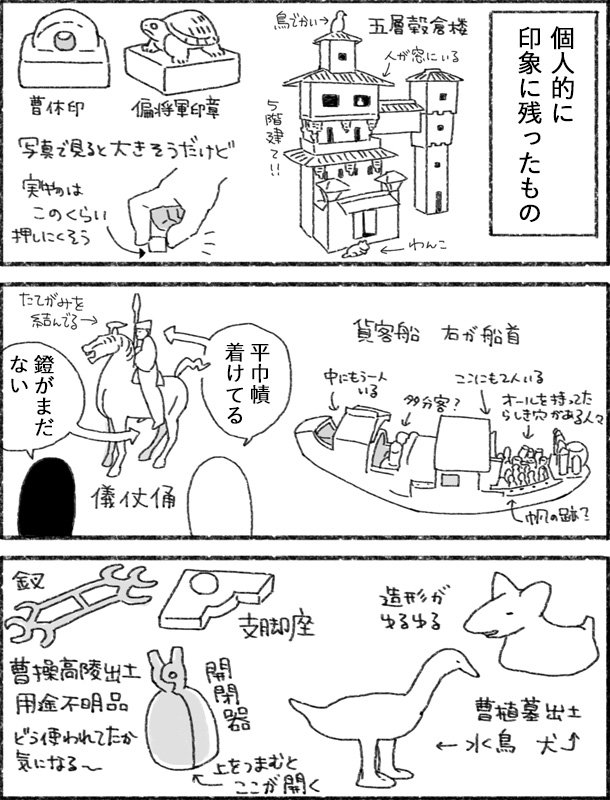 個人的に
印象に残ったもの
五層穀倉楼
鳥でかい→
人が窓にいる
5階建て!!
←わんこ
曹休印
偏将軍印章
写真で見ると大きそうだけど
実物は
このくらい
押しにくそう
貨客船 右が船首
ここにも2人いる
オールを持ってた
らしき穴がある人々
多分客?
中にもう一人
いる
帆の跡?
たてがみを
結んでる→
平巾幘
着けてる
鐙がまだ
ない
儀仗俑
釵
支脚座
曹操高陵出土
用途不明品
どう使われてたか
気になる〜
開閉器
上をつまむと
ここが開く
造形が
ゆるゆる
曹植墓出土
←水鳥 犬↑